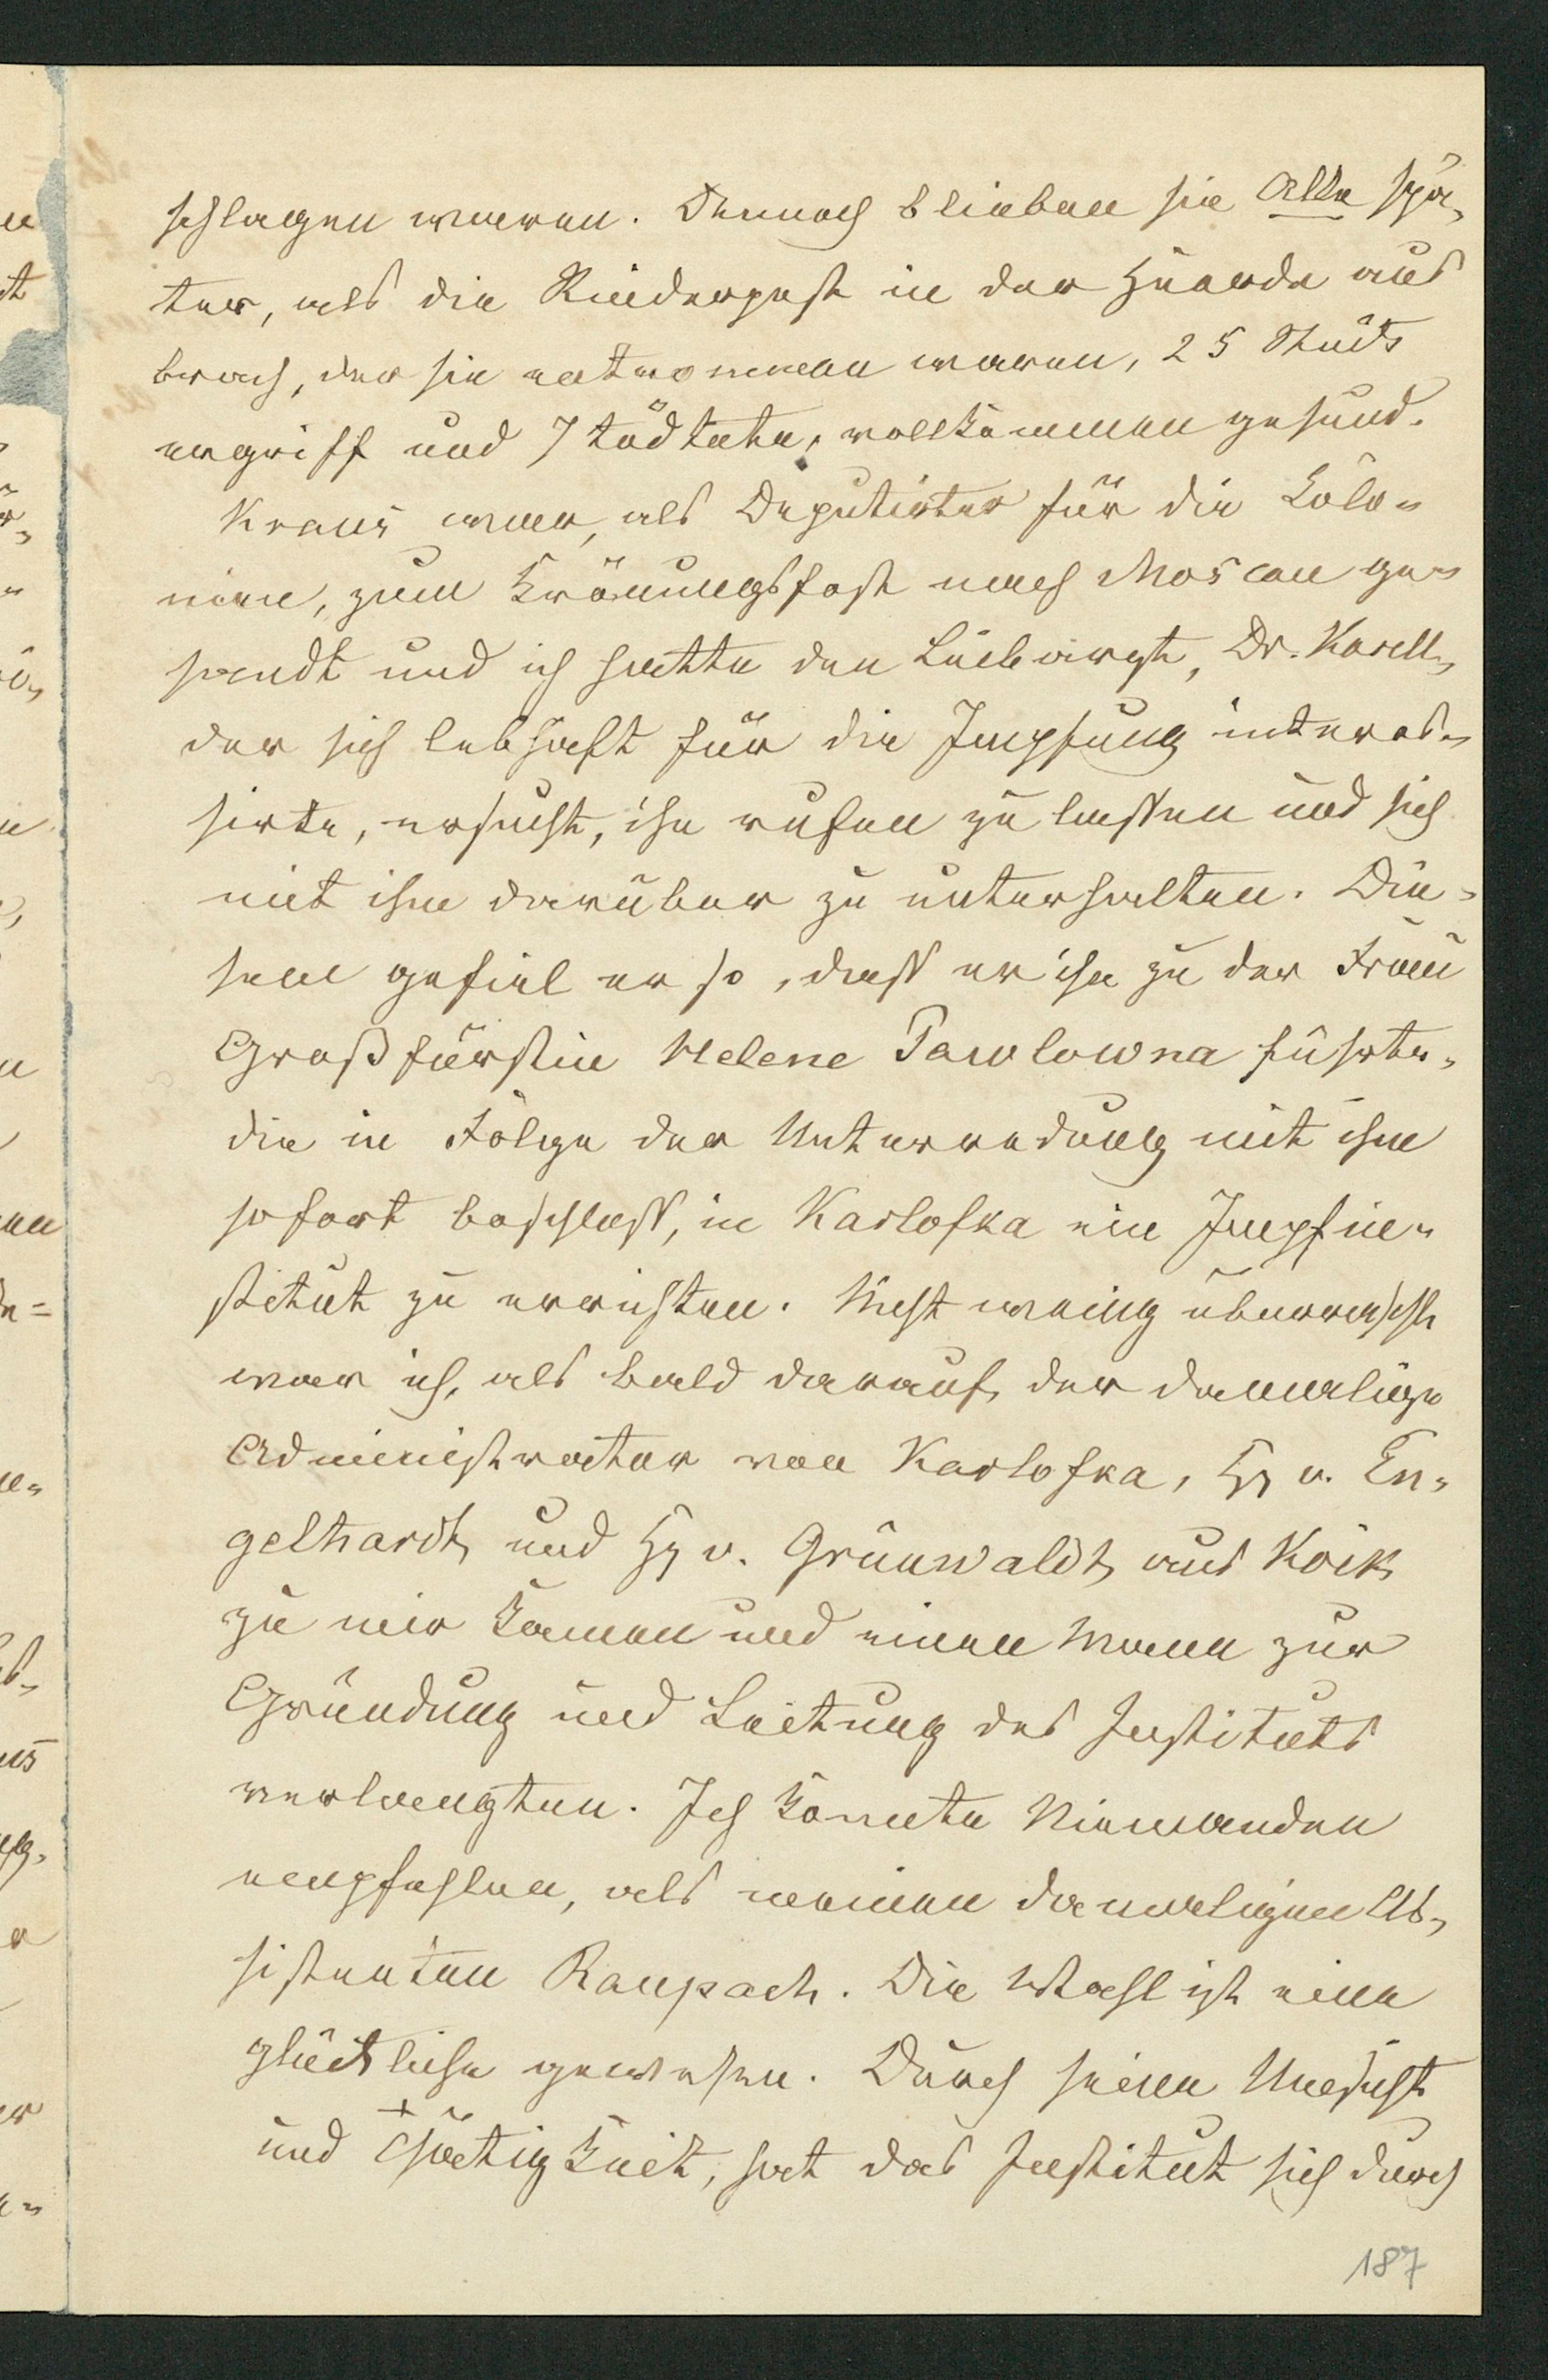 schlagen waren. Dennoch blieben sie Alle spä-
ter, als die Rinderpest in der Heerde aus
brach, der sie entnommen waren, 25 Stück
ergriff und 7 tödtete, vollkommen gesund.
Kraus war, als Deputirter für die Colo-
nien, zum Krönungsfest nach Moscau ge-
sandt und ich hatte den Leibarzt, Dr. Karell,
der sich lebhaft für die Impfung interes-
sirte, ersucht, ihn rufen zu lassen und sich
mit ihm darüber zu unterhalten. Die-
sem gefiel er so, dass er ihn zu der Frau
Großfürstin Helene Pawlowna führte,
die in Folge der Unterredung mit ihm
sofort beschloss, in Karlofka ein Impfin-
stitut zu errichten. Nicht wenig überrascht
war ich, als bald darauf, der damalige
Administrator von Karlofka, Hr v. En-
gelhardt, und Hr v. Grünwaldt, aus Koik
zu mir kamen und einen Mann zur
Gründung und Leitung des Instituts
verlangten. Ich konnte Niemanden
empfehlen, als meinen damaligen As-
sistenten Raupach. Die Wahl ist eine
glückliche gewesen. Durch seine Umsicht
und Thätigkeit, hat das Institut sich durch
187